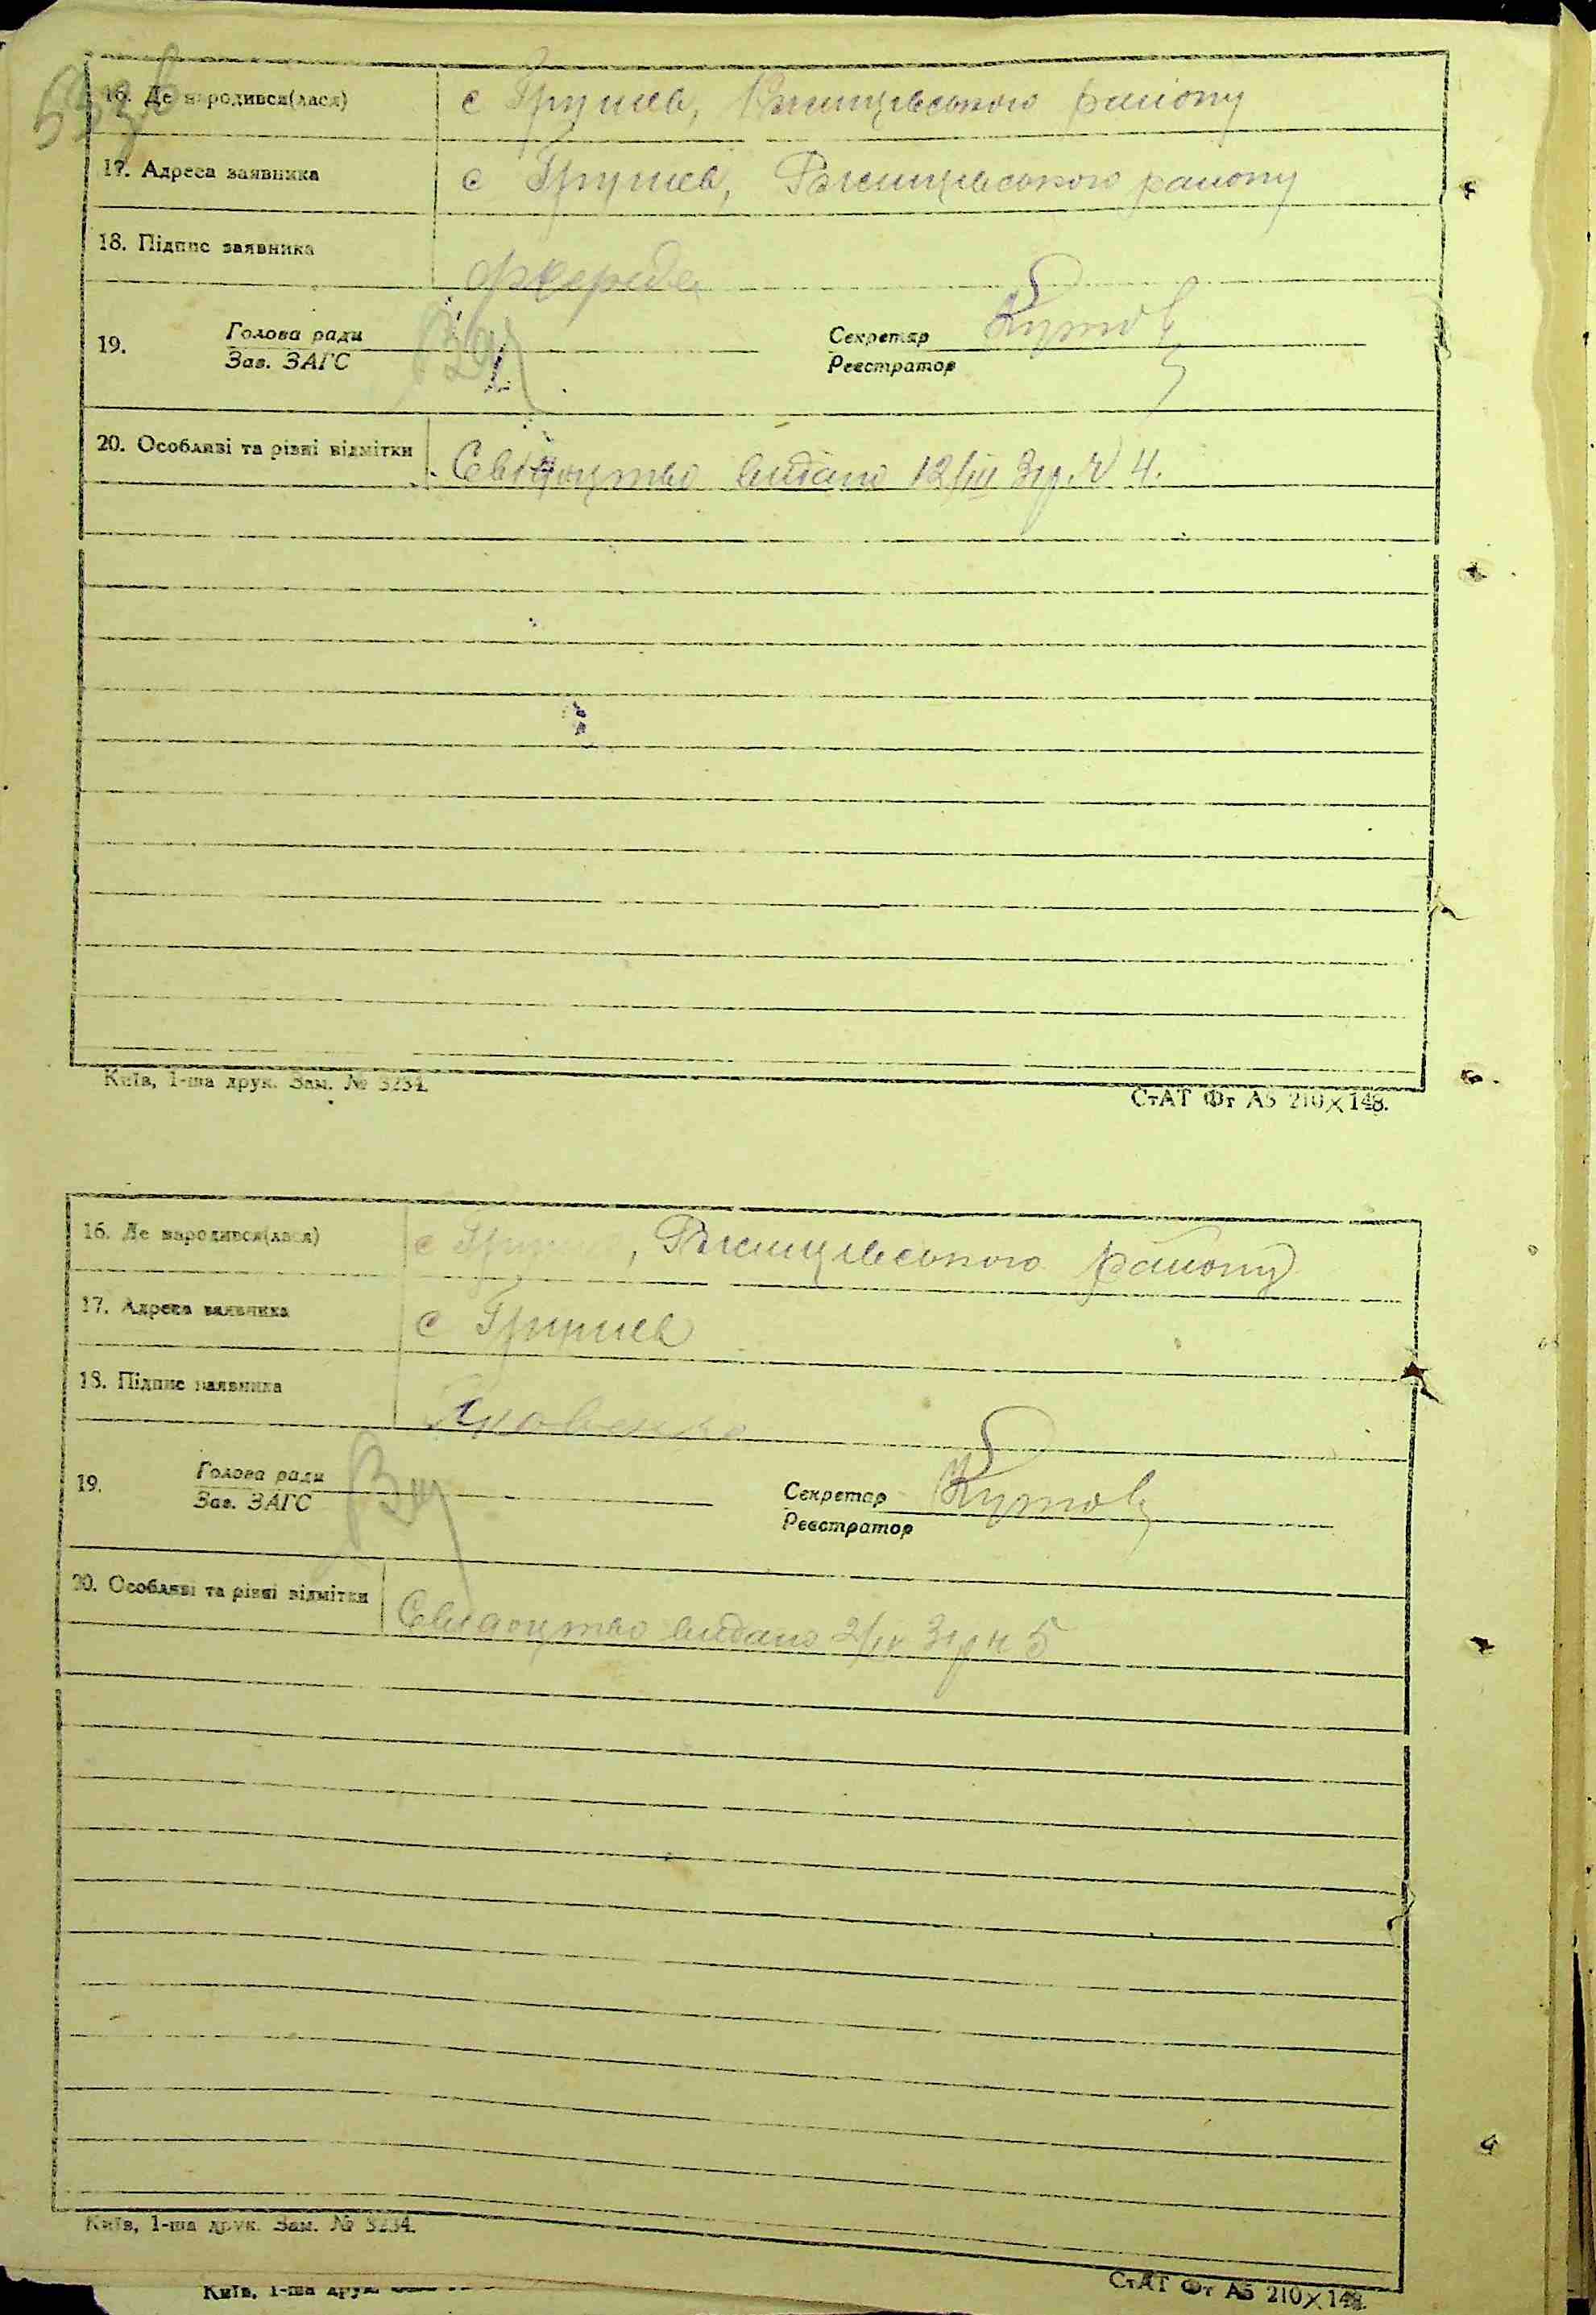 53 зв
16. Де народився(лася) с Грушев, Ржищівського району
17. Адреса заявника с Грушев, Ржищівського району
18. Підпис заявника
19. Голова ради Секретар
Зав. ЗАГС Реєстратор
20. Особливі та різні відмітки Свідоцтво видано 12/III 31р. № 4.
Київ, 1-ша друк. Зам. № 3234.
СтАТ Фт А5 210×148.
16. Де народився(лася) с , Ржищівського району
17. Адреса заявника с Грушев
18. Підпис заявника Яковенко
19. Голова ради Секретар
Зав. ЗАГС Реєстратор
20. Особливі та різні відмітки Свидоцтво видано 31р № 5
Київ, 1-ша друк. Зам. № 3234.
СтАТ Фт А5 210×148.
Київ, 1-ша друк.